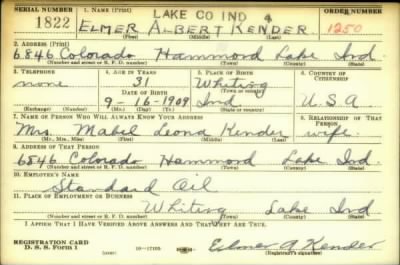 SERIAL NUMBER 1. NAME (Print) LAKE CO IND 4 ORDER NUMBER
1822 ELMER ALBERT KENDER 1250
(First) (Middle) (Last)
2. ADDRESS (Print)
6846 Colorado Hammond Lake Ind
(Number and street or R. F. D. number) (Town) (County) (State)
3. TELEPHONE 4. AGE IN YEARS 5. PLACE OF BIRTH 6. COUNTRY OF CITIZENSHIP
none 31 Whiting
DATE OF BIRTH (Town or county)
9-16-1909 Ind U.S.A
(Exchange) (Number) (Mo.) (Day) (Yr.) (State or country)
7. NAME OF PERSON WHO WILL ALWAYS KNOW YOUR ADDRESS 8. RELATIONSHIP OF THAT PERSON
Mrs. Mabel Leona Kender wife
(Mr., Mrs., Miss) (First) (Middle) (Last)
9. ADDRESS OF THAT PERSON
6846 Colorado Hammond Lake Ind.
(Number and street or R. F. D. number) (Town) (County) (State)
10. EMPLOYER'S NAME
Standard Oil
11. PLACE OF EMPLOYMENT OR BUSINESS
Whiting Lake Ind
(Number and street or R. F. D. number) (Town) (County) (State)
I AFFIRM THAT I HAVE VERIFIED ABOVE ANSWERS AND THAT THEY ARE TRUE.
REGISTRATION CARD
D. S. S. Form 1 16-17105 Elmer A Kender
(Registrant's signature)